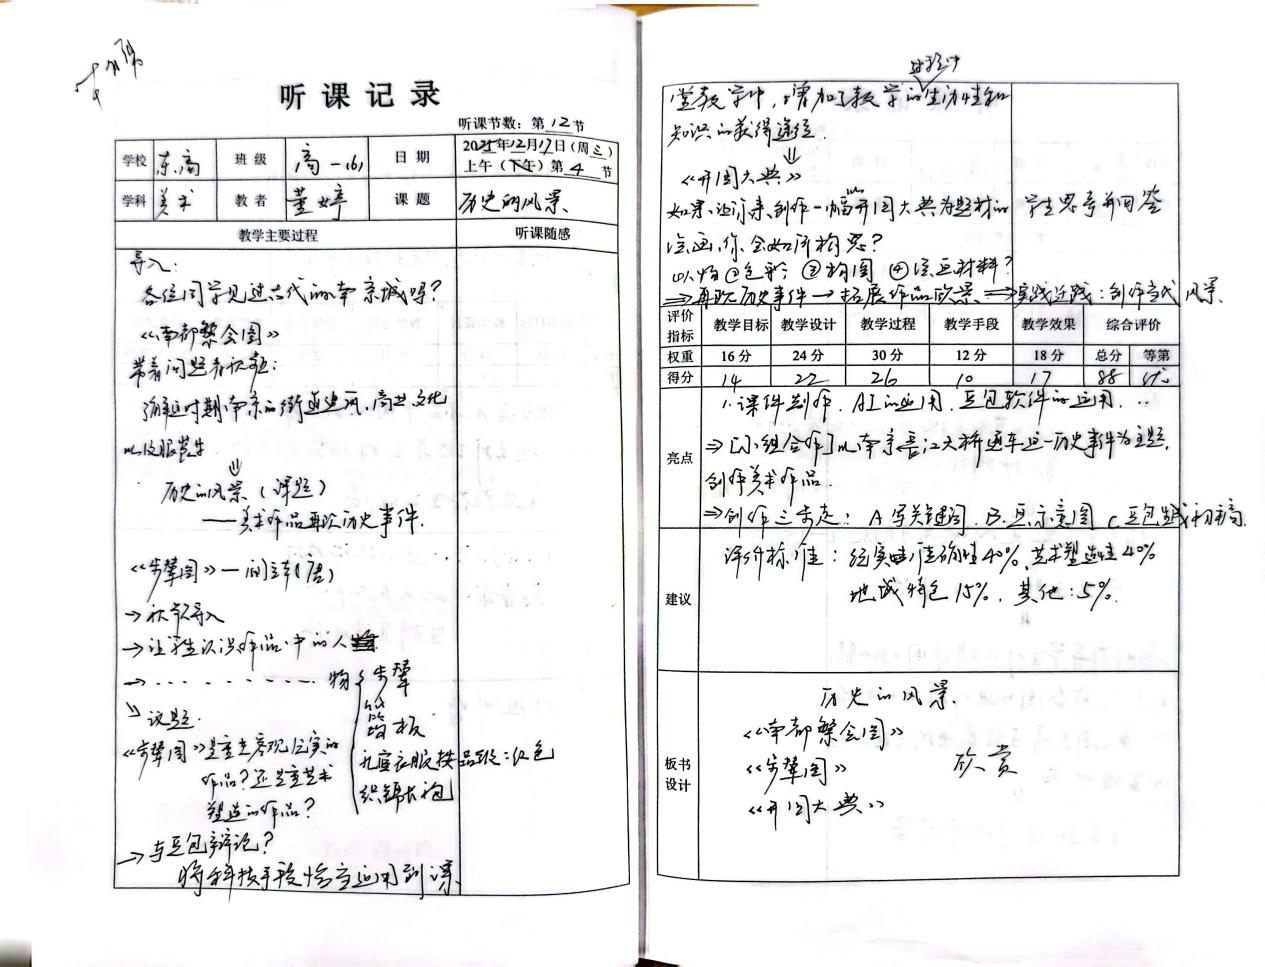 听课记录
听课节数：第 12 节
学校 东高 班级 高一(6) 日期 2025年12月17日(周三)
上午(下午)第 4 节
学科 美术 教者 董婷 课题 历史的风景
教学主要过程 听课随感
导入：
各位同学见过古代的南京城吗？
《南都繁会图》
带着问题看视频：
时期南京的街道建筑，商业文化
以及服装等
⇓
历史的风景（课题）
——美术作品再现历史事件.
《步辇图》—阎立本(唐)
→ 视频导入
→ 让学生认识作品中的人
→ ......... 物 步辇
笏板
九宫衣服按品级：红色
织锦长袍
议题：
《步辇图》是重在客观纪实的
作品？还是重艺术
塑造的作品？
→ 与豆包辩论？
将科技手段恰当运用到课
堂教学中，增加了教学的生动性和
知识的获得途径.
⇓
《开国大典》
如果让你来创作一幅以开国大典为题材的 学生思考并回答
绘画，你会如何构思？
①人物 ②色彩 ③构图 ④绘画材料？
⇒ 再现历史事件 → 拓展作品欣赏 ⇒ 实践：创作当代风景.
评价指标 教学目标 教学设计 教学过程 教学手段 教学效果 综合评价
权重 16分 24分 30分 12分 18分 总分 等第
得分 14 22 26 10 17 88 优
亮点
1. 课件制作，AI的运用，豆包软件的运用...
⇒ [小组合作] 以南京长江大桥通车这一历史事件为主题，
创作美术作品.
⇒ 创作三步走：A 写关键词，B. 画示意图 C 豆包生成初稿.
建议
评价标准：纪实准确性40%，艺术塑造性40%
地域特色15%，其他：5%.
板书设计
历史的风景
《南都繁会图》
《步辇图》 欣赏
《开国大典》